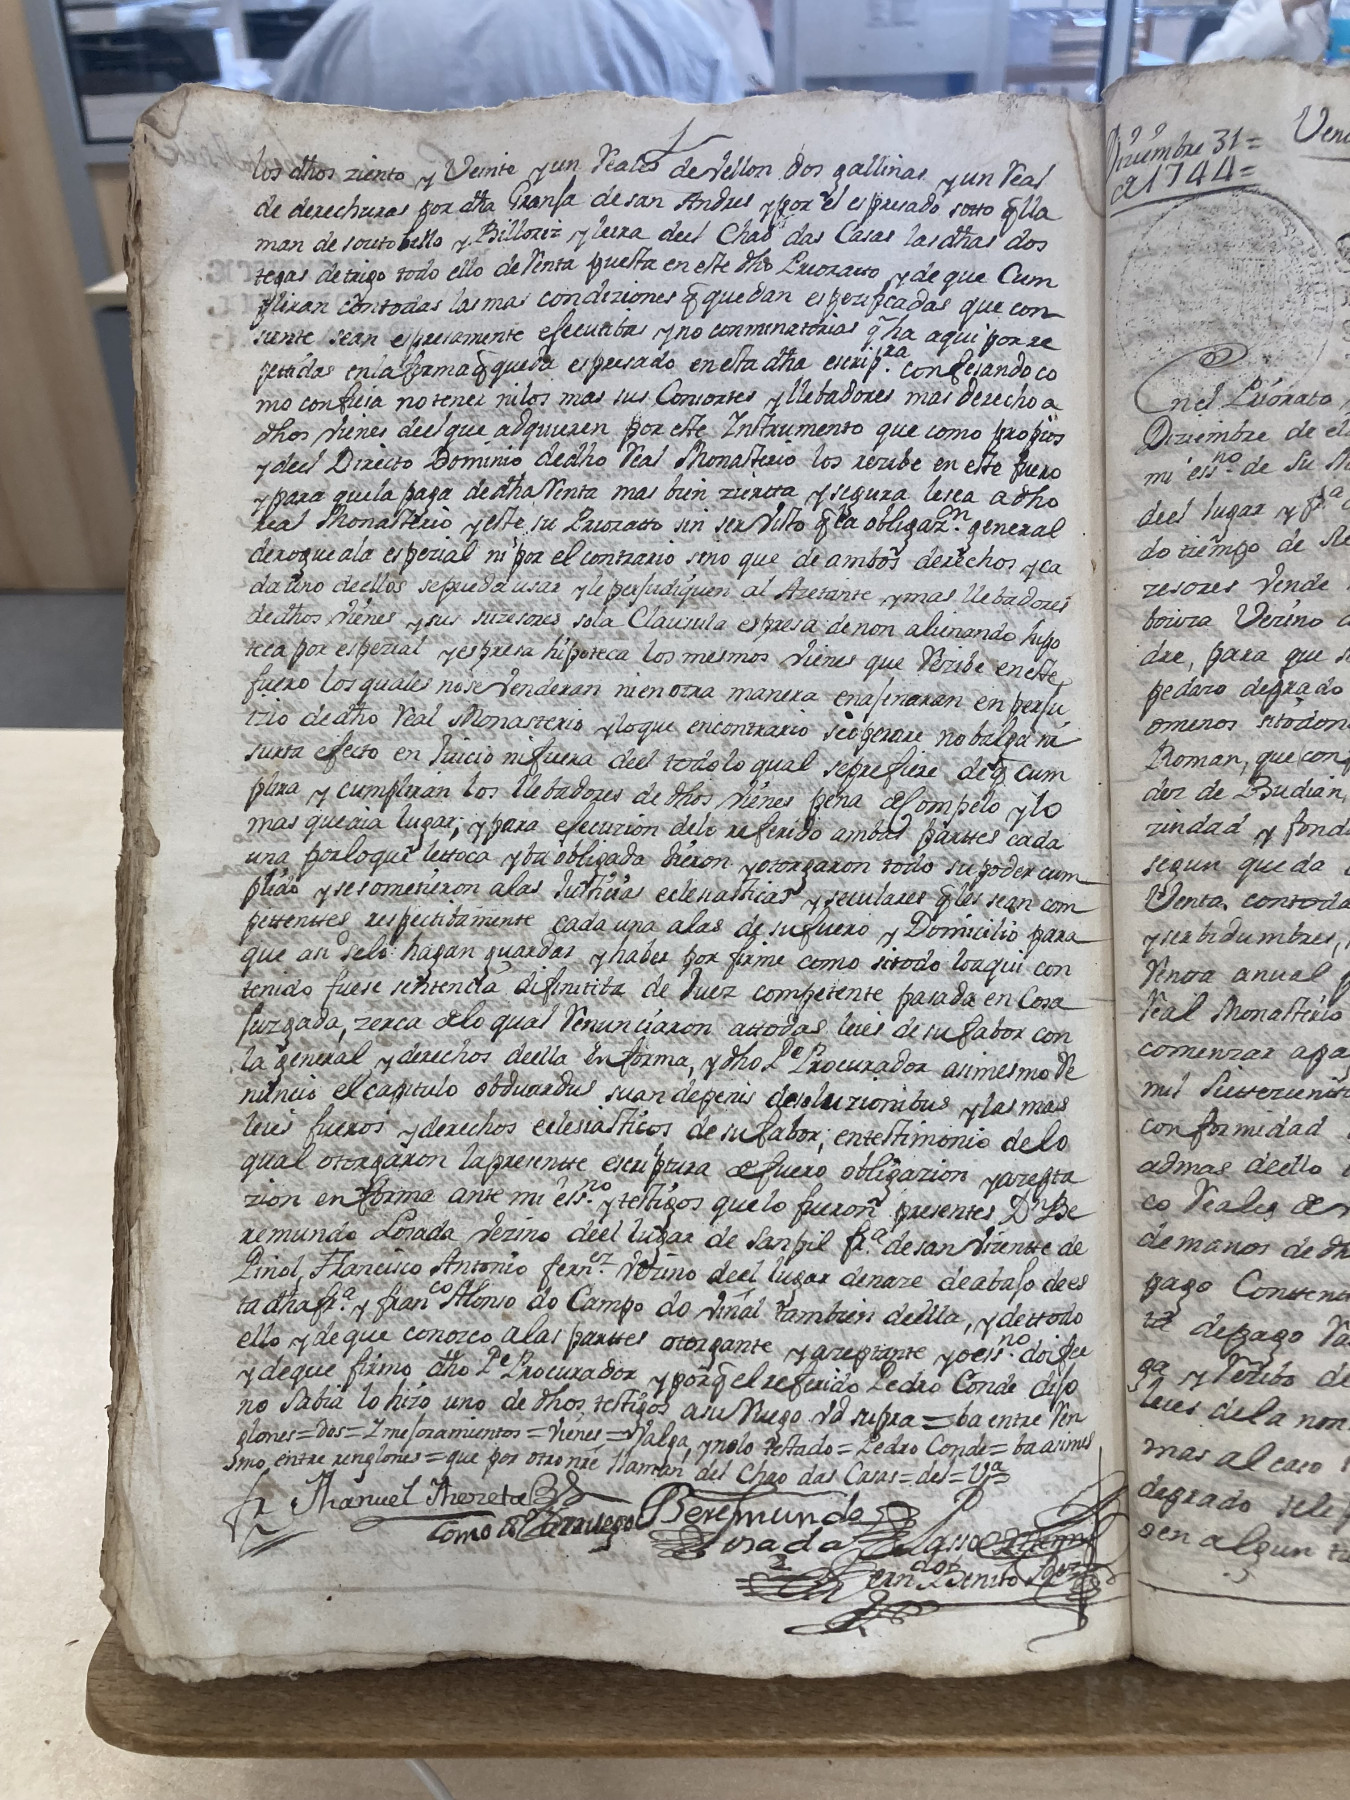 los dhos ziento y Veinte y un Reales de vellon dos gallinas y un Real
de derechuras por dha Granja de san Andres y por el espresado sotto q̃ lla
man de soutobello y Billoriz y leira deel Chao das Casas las dhas dos
tegas de trigo todo ello de Renta puesta en este dho Prioratto y de que Cum
pliran con todas las mas condiziones q̃ quedan espezificadas que con
siente sean espresamente efecutibas y no conminatorias q̃ ha aqui por re
petidas en la forma q̃ queda espresado en esta dha escripra. confesando co
mo confiesa no tener ni los mas sus Consortes y llebadores mas derecho a
dhos vienes deel que adquieren por este Instrumento que como propios
y deel Directo Dominio de dho Real Monasterio los rezibe en este fuero
y para que la paga de dha Renta mas bien zierta y segura le sea a dho
real Monasterio y este su Prioratto sin ser visto q̃ la obligazon. general
derogue a la espezial ni por el contrario sino que de ambos derechos y ca
da uno deellos se pueda usar y le perjudiquen al Azetante y mas llebadores
de dhos vienes y sus suzesores sola Clausula espresa de non alienando hipo
teca por espezial y espresa hipoteca los mesmos vienes que Rezibe en este
fuero los quales no se venderan ni en otra manera enajenaran en perjui
zio de dho Real Monasterio y lo que encontrario se operare no balga ni
surta efecto en Juicio ni fuera deel todo lo qual se prefiere de q̃ cum
plira y cumpliran los llebadores de dhos vienes pena de Compelo y lo
mas que aia lugar; y para efecuzion de lo referido ambas parttes cada
una por lo que le ttoca y ba obligada dieron y otorgaron todo su poder cum
plido y se sometieron a las Justicias eclesiasticas y seculares q̃ les sean com
pettenttes respectibamente cada una a las de su fuero y Domicilio para
que asi se lo hagan guardar y haber por firme como si todo lo aqui con
tenido fuese sentencia difinitiba de Juez competente pasada en Cosa
juzgada, zerca de lo qual Renunciaron a ttodas leies de su fabor con
la general y derechos deella en forma, y dho Pe Procurador asimesmo Re
nuncio el capitulo obduardus suan depenis de soluzionibus y las mas
leies fueros y derechos eclesiasticos de su fabor; en testimonio de lo
qual otorgaron la presentte escriptura de fuero obligazion y azepta
zion en forma ante mi essno. y testigos que lo fueron presentes Dn Be
remundo Losada vezino deel lugar de Sanfil fra. de san Vizentte de
Pinol, Francisco Antonio fernez. Vezino deel lugar de naze de abajo de es
ta dha fra. y franco Alonso do Campo do Viñal tambien deella, y de ttodo
ello y de que conozco a las parttes otorgante y azeptante yo essno. doi fee
y de que firmo dho Pe Procurador y por q̃ el referido Pedro Conde dijo
no sabia lo hizo uno de dhos testigos a su Ruego Vd supra = ba entre Ren
glones = Dos = Y mejoramientos = Vienes = Valga, y no lo testado = Pedro Conde = ba asimes
smo entre renglones = que por otro nre llaman del Chao das Casas = del = Va =
fr Manuel
Como to
Beremundo
Losada
Benito
Diziembre 31 =
de 1744 =
Ven
En el Priorato
Diziembre de el
mi essno. de Su M
deel lugar y fra
do tiempo de
zesores Vende
Vezino
dre, para que
pedazo degrado
omenos
Roman, que conf
dor de Budian,
zindad y fond
segun queda
Venta, con toda
y serbidumbres,
Renta anual
Real Monasterio
comenzar a pa
mil Settezientos
conformidad
admas deello
co Reales de
de manos de dh
pago Conten
te de pago
ga y Rezibo de
leies de la non
mas al caso
degrado se le
sen algun